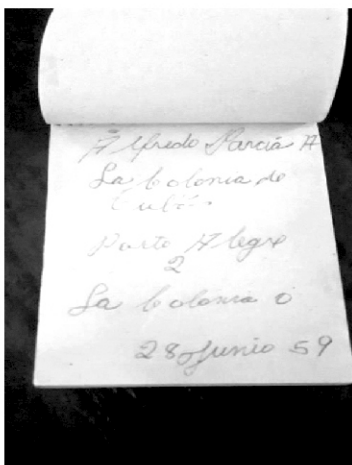 Alfredo Garcia A
La Colonia de
Porto Alegre
2
La Colonia o
28 Junio 59